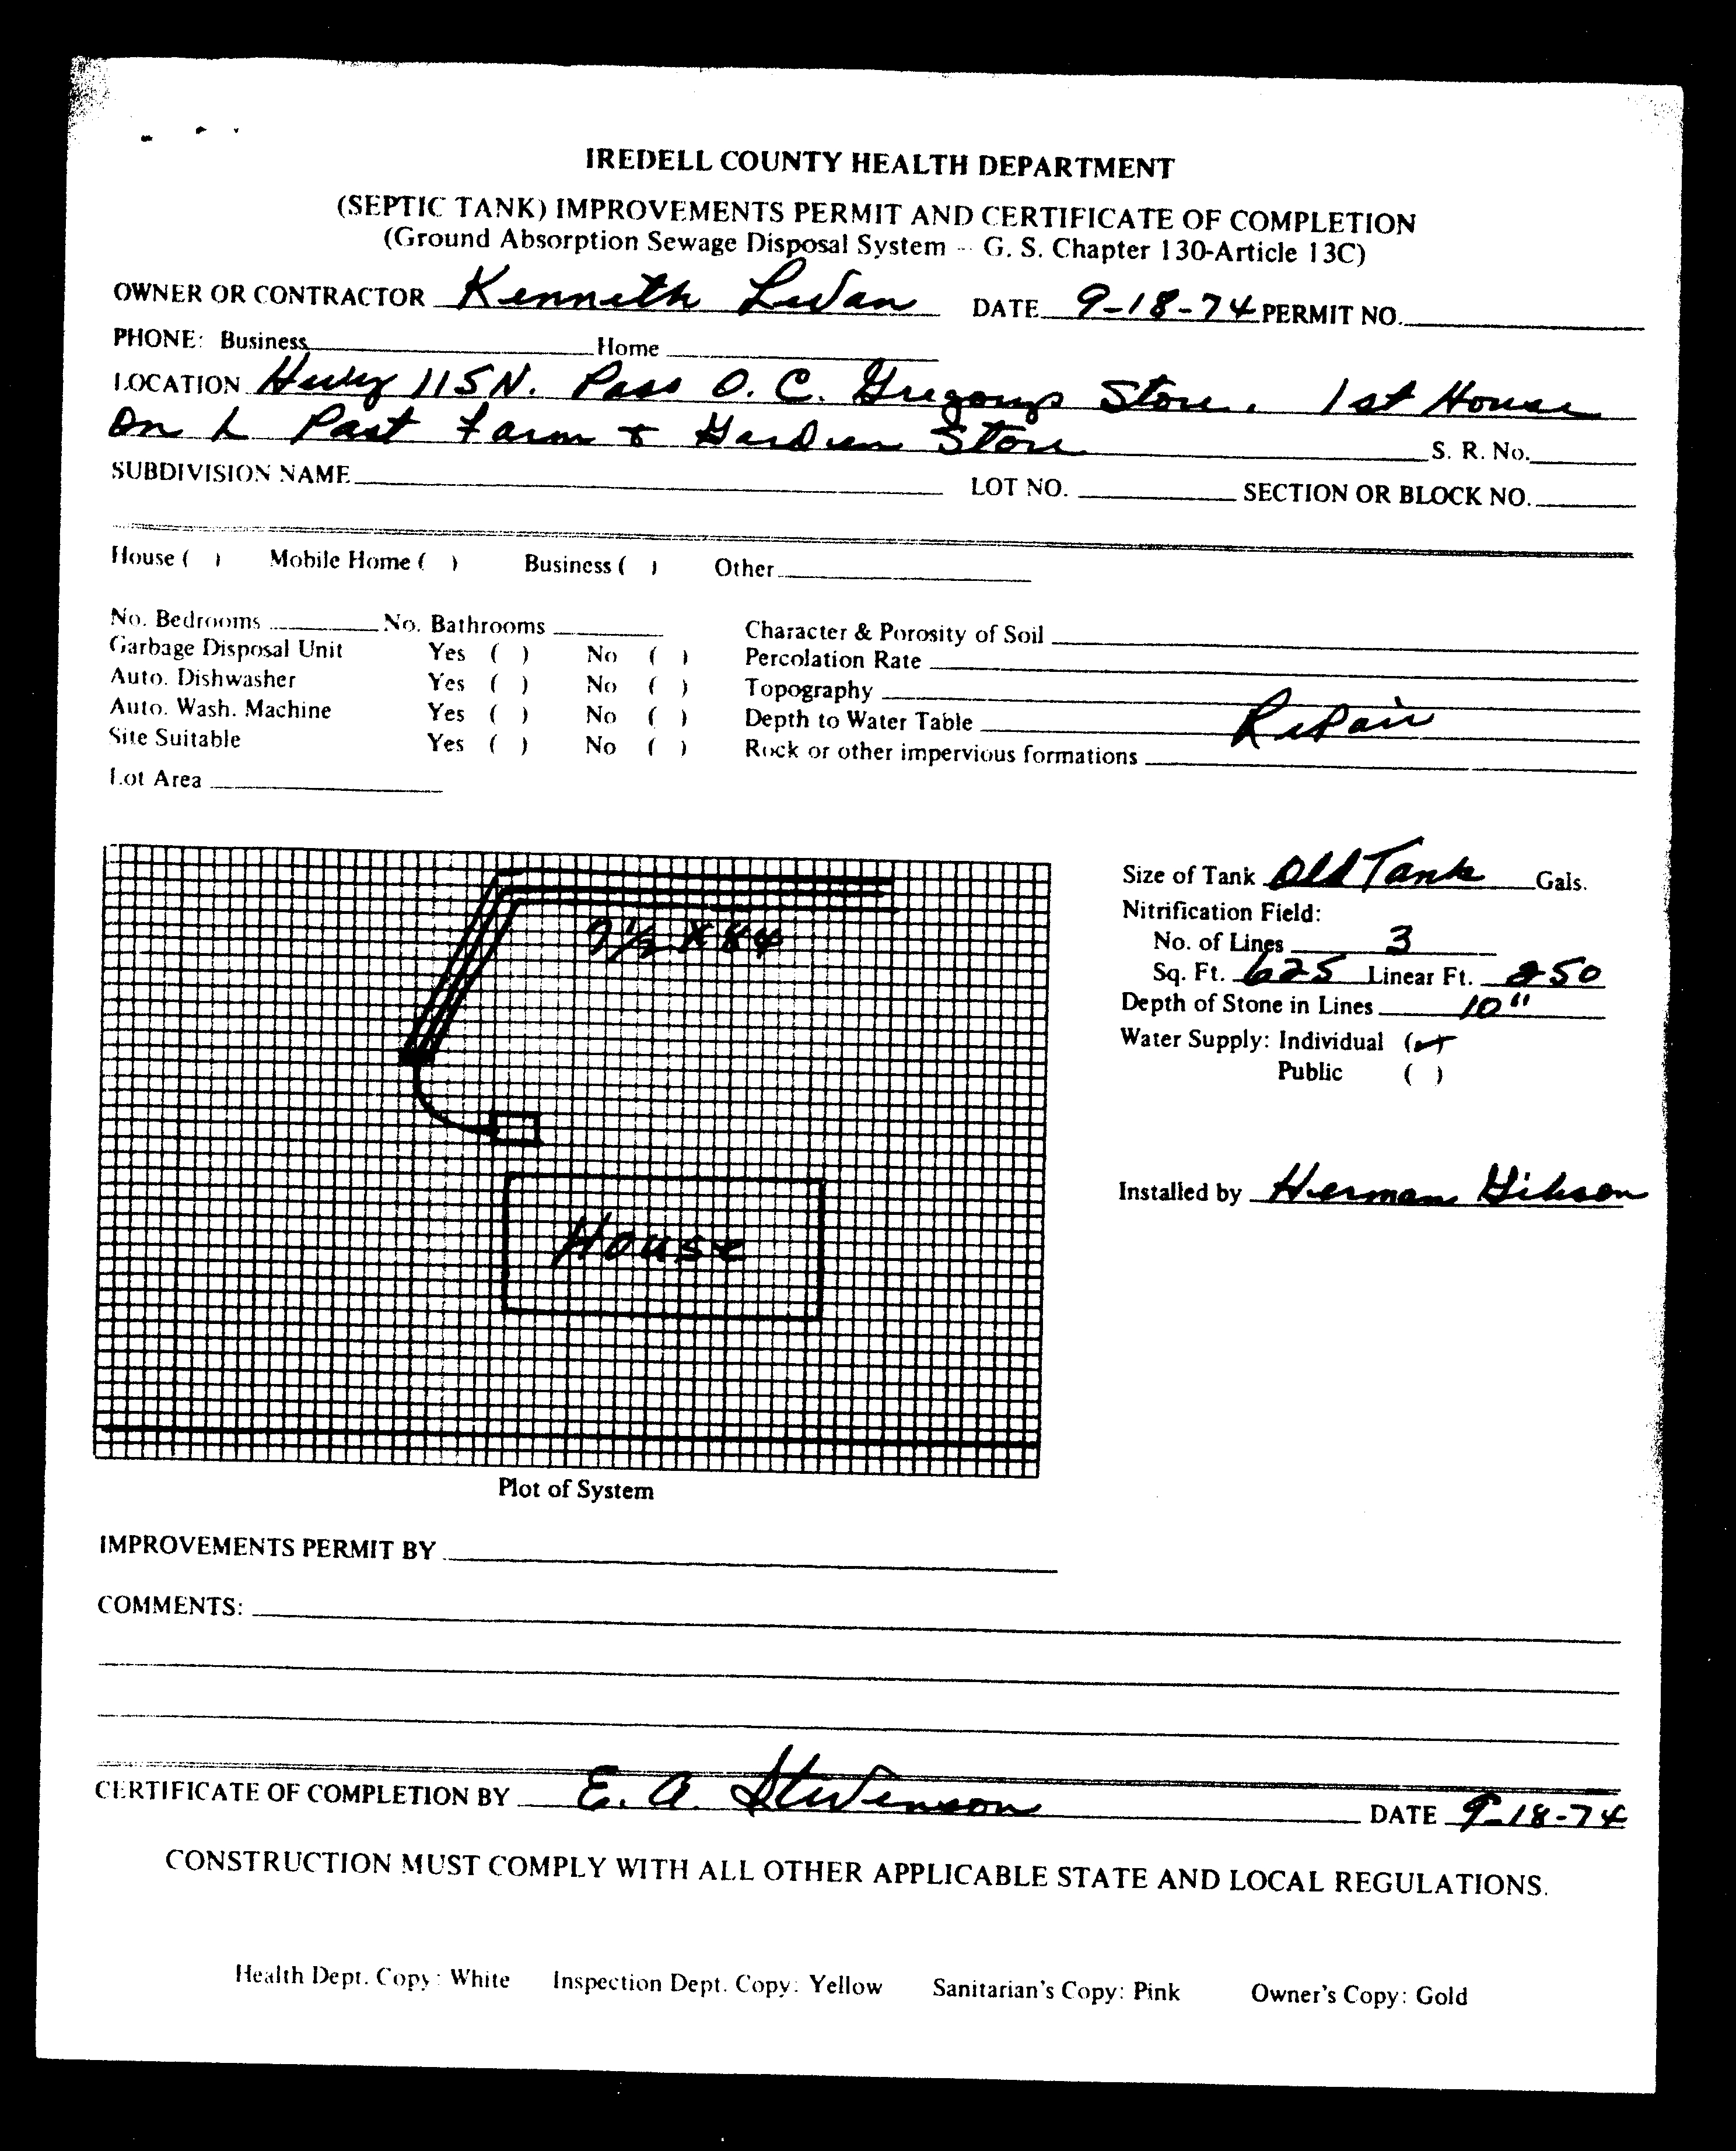 IREDELL COUNTY HEALTH DEPARTMENT
(SEPTIC TANK) IMPROVEMENTS PERMIT AND CERTIFICATE OF COMPLETION
(Ground Absorption Sewage Disposal System -- G. S. Chapter 130-Article 13C)
OWNER OR CONTRACTOR Kenneth Levan DATE 9-18-74 PERMIT NO.
PHONE: Business Home
LOCATION Hwy 115 N. Pass O. C. Gregorys Store. 1st House
On L Past Farm & Garden Store S. R. No.
SUBDIVISION NAME LOT NO. SECTION OR BLOCK NO.
House ( ) Mobile Home ( ) Business ( ) Other
No. Bedrooms No. Bathrooms Character & Porosity of Soil
Garbage Disposal Unit Yes ( ) No ( ) Percolation Rate
Auto. Dishwasher Yes ( ) No ( ) Topography
Auto. Wash. Machine Yes ( ) No ( ) Depth to Water Table Repair
Site Suitable Yes ( ) No ( ) Rock or other impervious formations
Lot Area
Size of Tank Old Tank Gals.
Nitrification Field:
No. of Lines 3
Sq. Ft. 625 Linear Ft. 250
Depth of Stone in Lines 10"
Water Supply: Individual (✓)
Public ( )
Installed by Herman Gibson
X 84
House
Plot of System
IMPROVEMENTS PERMIT BY
COMMENTS:
CERTIFICATE OF COMPLETION BY E. A. Stevenson DATE 9-18-74
CONSTRUCTION MUST COMPLY WITH ALL OTHER APPLICABLE STATE AND LOCAL REGULATIONS.
Health Dept. Copy: White Inspection Dept. Copy: Yellow Sanitarian's Copy: Pink Owner's Copy: Gold